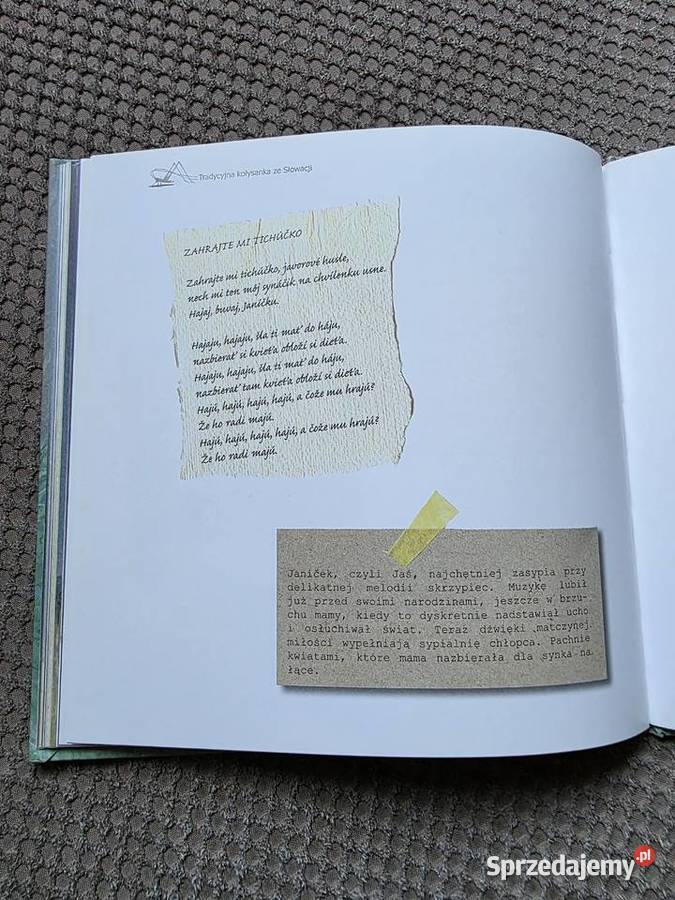 Tradycyjna kołysanka ze Słowacji
ZAHRAJTE MI TICHÚČKO
Zahrajte mi tichúčko, javorové husle,
nech mi ten môj synáčik na chvílenku usne.
Hajaj, buvaj, Janíčku.
Hajaju, hajaju, šla ti mať do háju,
nazbierať si kvieťa obloží si dieťa.
Hajaju, hajaju, šla ti mať do háju,
nazbierať tam kvieťa obloží si dieťa.
Hajú, hajú, hajú, hajú, a čože mu hrajú?
Že ho radi majú.
Hajú, hajú, hajú, hajú, a čože mu hrajú?
Že ho radi majú.
Janíček, czyli Jaś, najchętniej zasypia przy
delikatnej melodii skrzypiec. Muzykę lubił
już przed swoimi narodzinami, jeszcze w brzu-
chu mamy, kiedy to dyskretnie nadstawiał ucho
i osłuchiwał świat. Teraz dźwięki matczynej
miłości wypełniają sypialnię chłopca. Pachnie
kwiatami, które mama nazbierała dla synka na
łące.
Sprzedajemy.pl